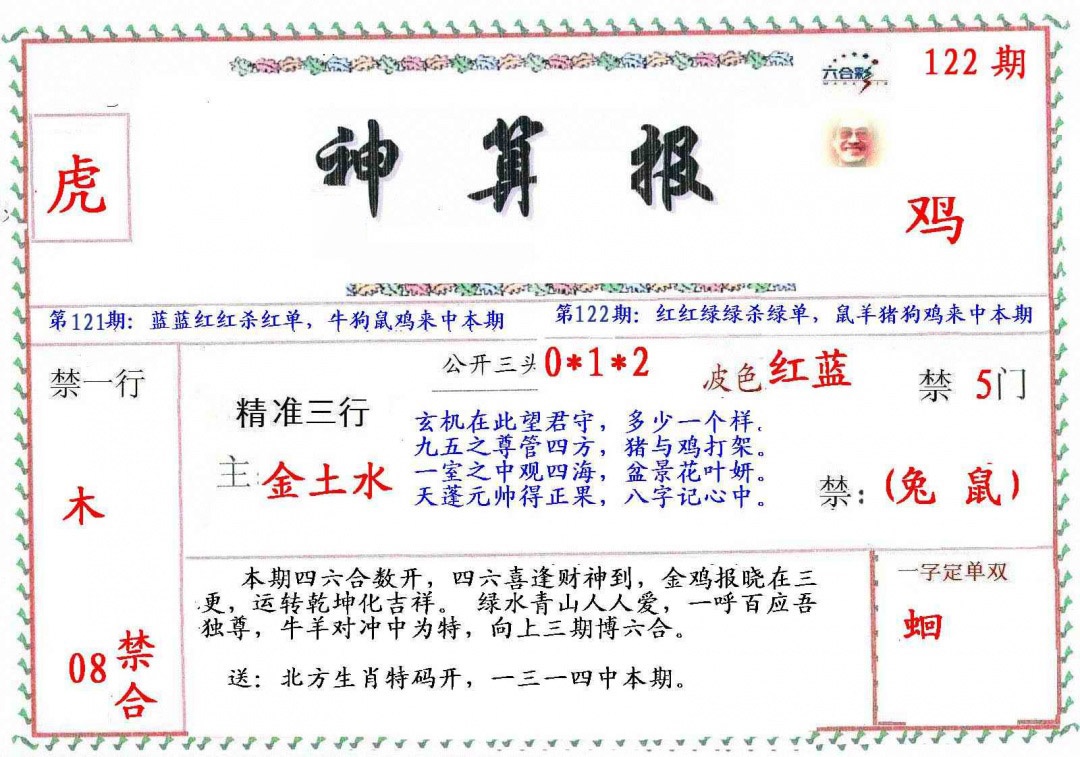 六合彩
122 期
虎
神算报
鸡
第121期：蓝蓝红红杀红单，牛狗鼠鸡来中本期
第122期：红红绿绿杀绿单，鼠羊猪狗鸡来中本期
禁一行
木
08 禁合
公开三头 0*1*2
波色 红蓝
禁 5门
精准三行
主: 金土水
玄机在此望君守，多少一个样。
九五之尊管四方，猪与鸡打架。
一室之中观四海，盆景花叶妍。
天蓬元帅得正果，八字记心中。
禁：(兔 鼠)
本期四六合数开，四六喜逢财神到，金鸡报晓在三
更，运转乾坤化吉祥。 绿水青山人人爱，一呼百应吾
独尊，牛羊对冲中为特，向上三期博六合。
送：北方生肖特码开，一三一四中本期。
一字定单双
蛔